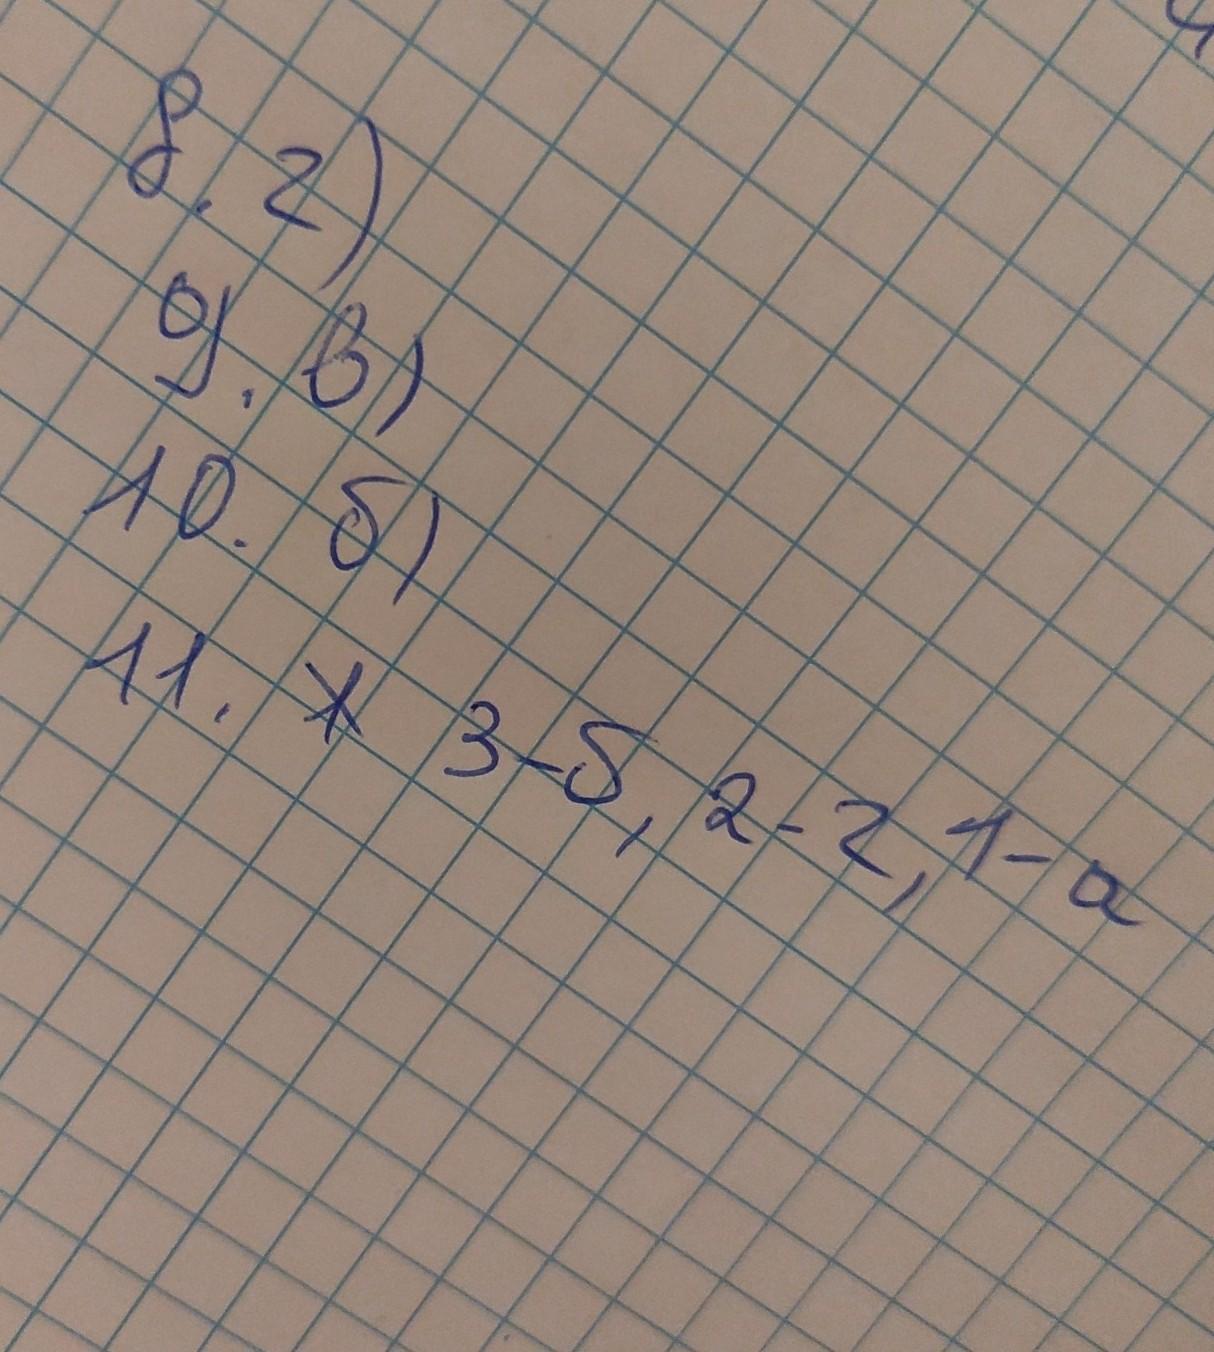 8. г)
9. в)
10. б)
11. * 3-б, 2-г, 1-а